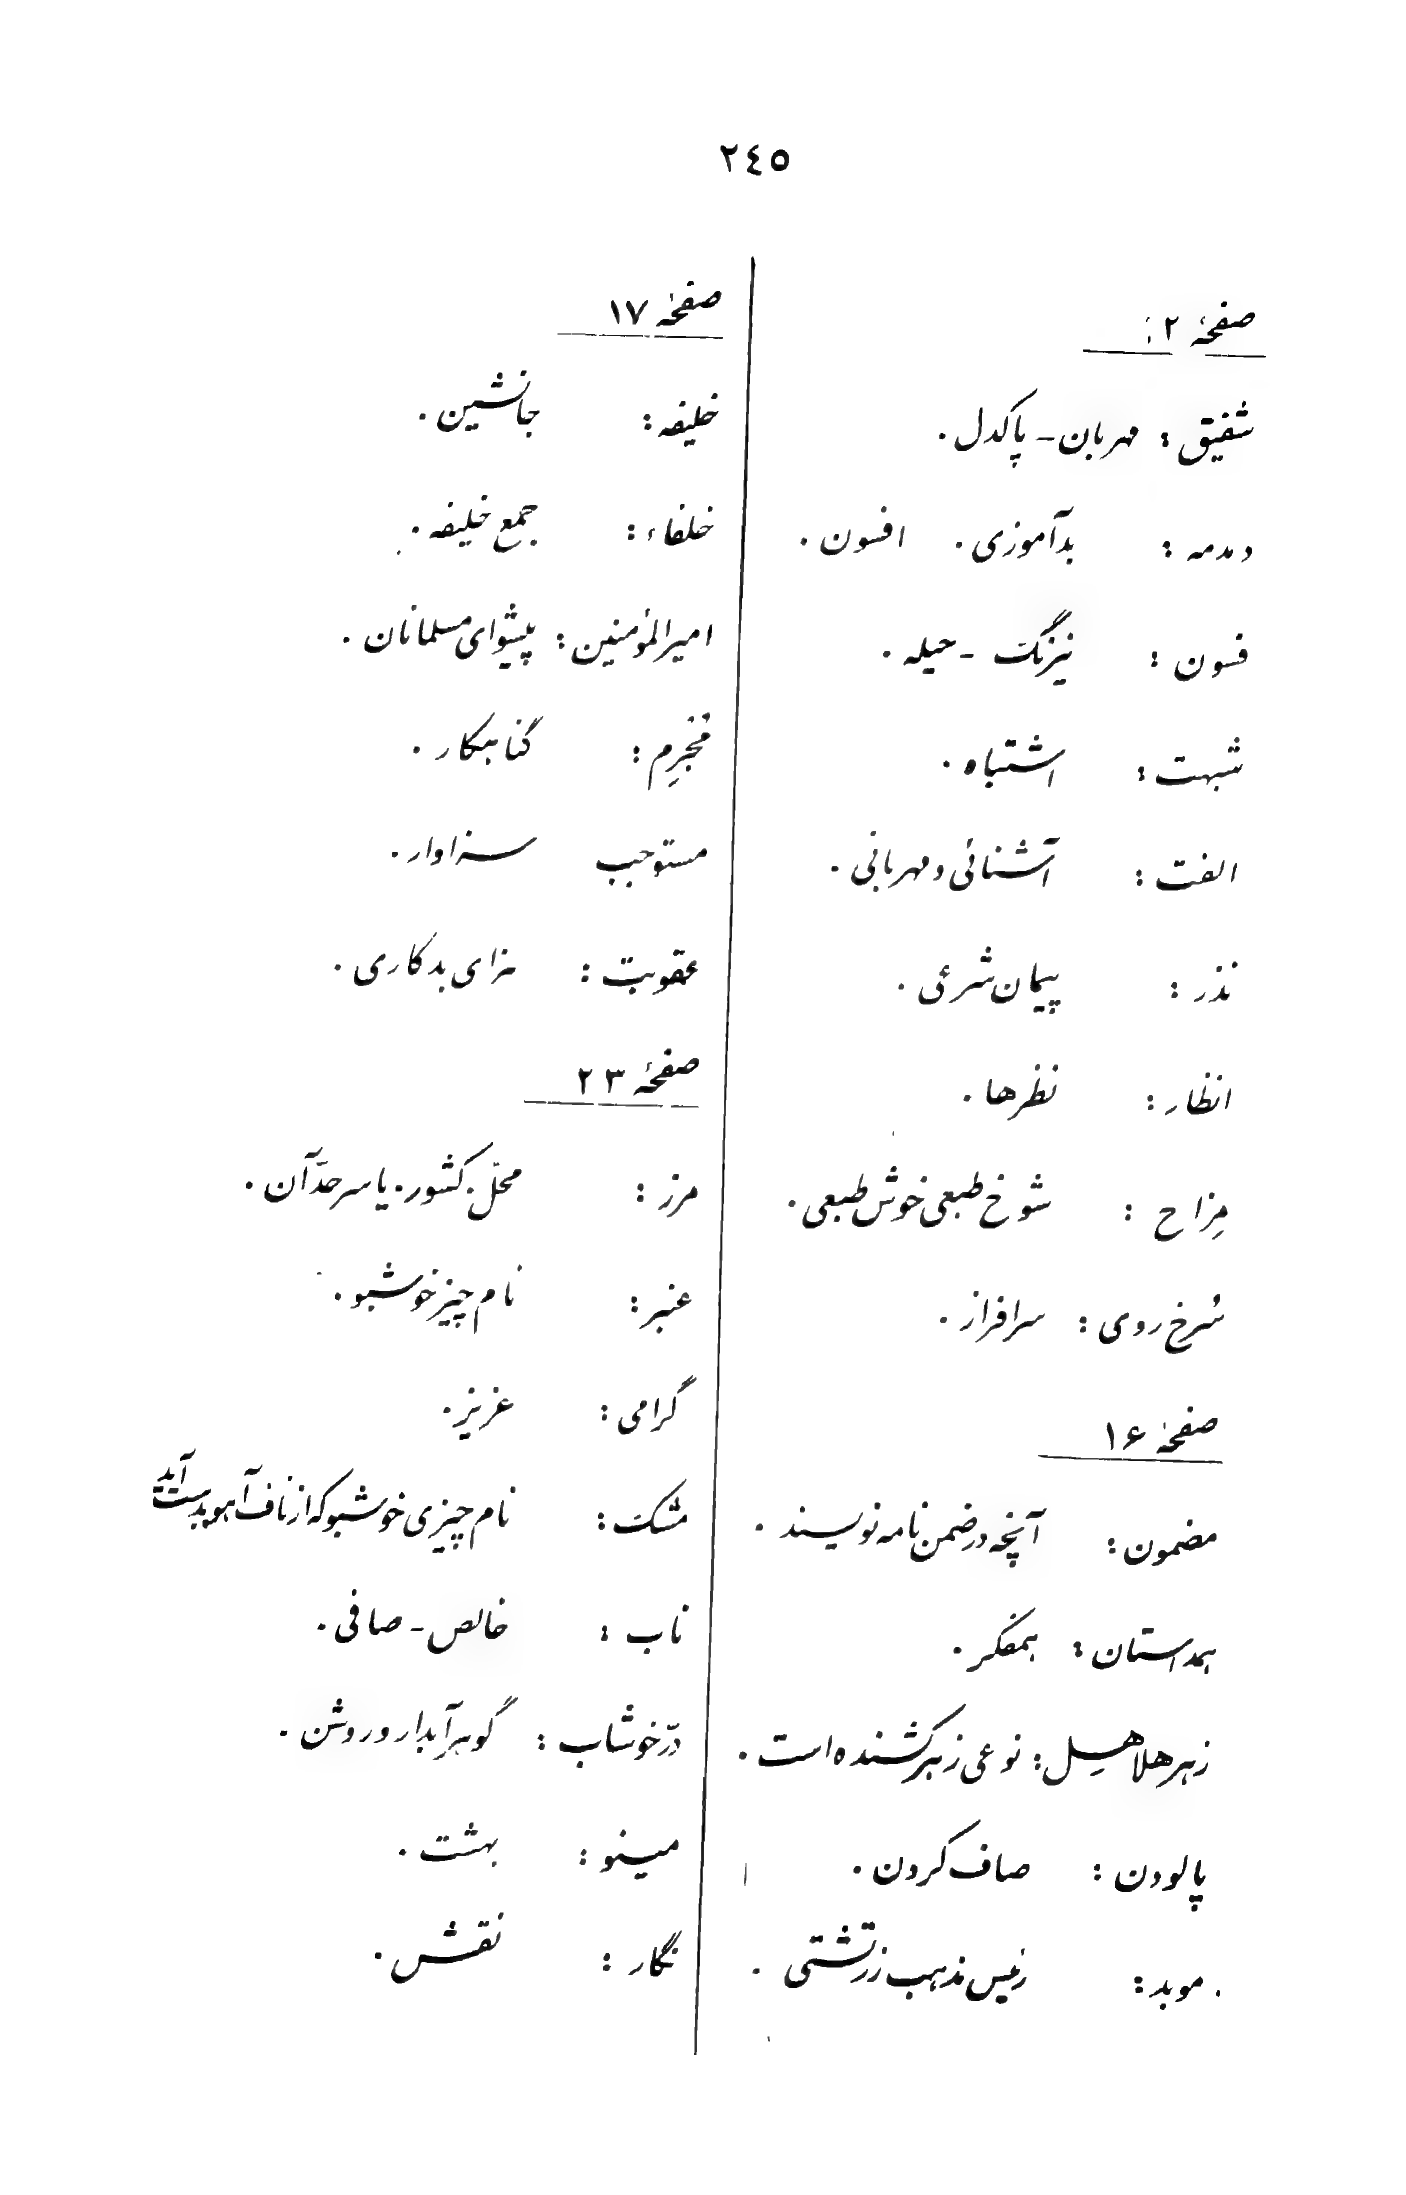 ٢٤٥
صفحهٔ ۱۲
شفیق : مهربان - پاکدل .
دمدمه : بدآموزی . افسون .
فسون : نیرنگ - حیله .
شبهت : اشتباه .
الفت : آشنائی و مهربانی .
نذر : پیمان شرعی .
انظار : نظرها .
مِزاح : شوخ طبعی خوش طبعی .
سُرخ روی : سرافراز .
صفحهٔ ۱۶
مضمون : آنچه در ضمن نامه نویسند .
همداستان : همفکر .
زهر هلاهل : نوعی زهر کشنده است .
پالودن : صاف کردن .
موبد : رئیس مذهب زرتشتی .
صفحهٔ ۱۷
خلیفه : جانشین .
خلفاء : جمع خلیفه .
امیرالمؤمنین : پیشوای مسلمانان .
مجرِم : گناهکار .
مستوجب سزاوار .
عقوبت : سزای بدکاری .
صفحهٔ ۲۳
مرز : محلّ کشور . یا سرحدّ آن .
عنبر : نام چیز خوشبو .
گرامی : عزیز .
مشک : نام چیزی خوشبو که از ناف آهو بدست آید
ناب : خالص - صافی .
درّ خوشاب : گوهر آبدار و روشن .
مینو : بهشت .
نگار : نقش .